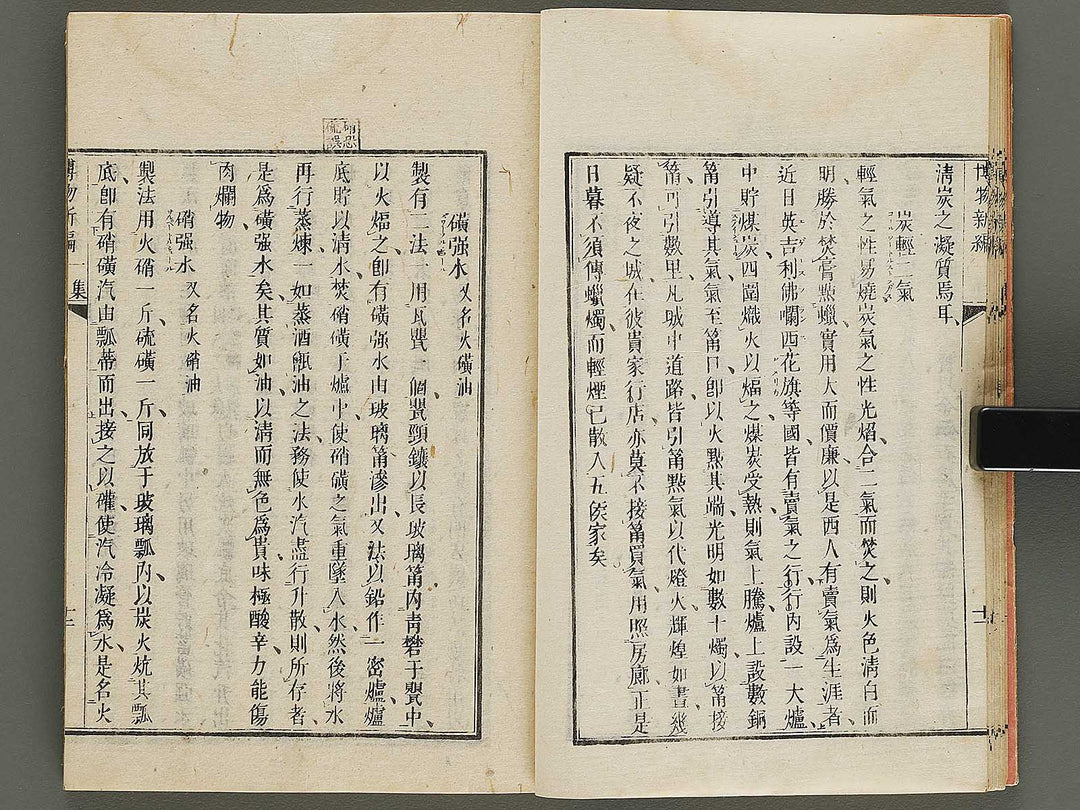 博物新編
淸炭之凝質焉耳
炭輕二氣
輕氣之性易燒炭氣之性光熖合二氣而焚之則火色淸白而
明勝於焚膏點蠟實用大而價廉以是西人有賣氣爲生涯者
近日英吉利佛囒西花旗等國皆有賣氣之行行內設一大爐
中貯煤炭四圍熾火以煏之煤炭受熱則氣上騰爐上設數銅
筩引導其氣氣至筩口卽以火點其端光明如數十燭以筩接
筩可引數里凡城中道路皆引筩點氣以代燈火輝煌如晝幾
疑不夜之城在彼貴家行店亦莫不接筩買氣用照房廊正是
日暮不須傳蠟燭而輕煙已散入五矦家矣
磺强水又名火磺油
製有二法一用瓦甖二個甖頸鑲以長玻璃筩內靑礬于甖中
以火煏之卽有磺强水由玻璃筩滲出又法以鉛作一密爐爐
底貯以淸水焚硝磺于爐中使硝磺之氣重墜入水然後將水
再行蒸煉一如蒸酒甑油之法務使水汽盡行升散則所存者
是爲磺强水矣其質如油以淸而無色爲貴味極酸辛力能傷
肉爛物
硝强水又名火硝油
製法用火硝一斤硫磺一斤同放于玻璃瓢內以炭火炕其瓢
底卽有硝磺汽由瓢蒂而出接之以礶使汽冷凝爲水是名火
博物新編一集